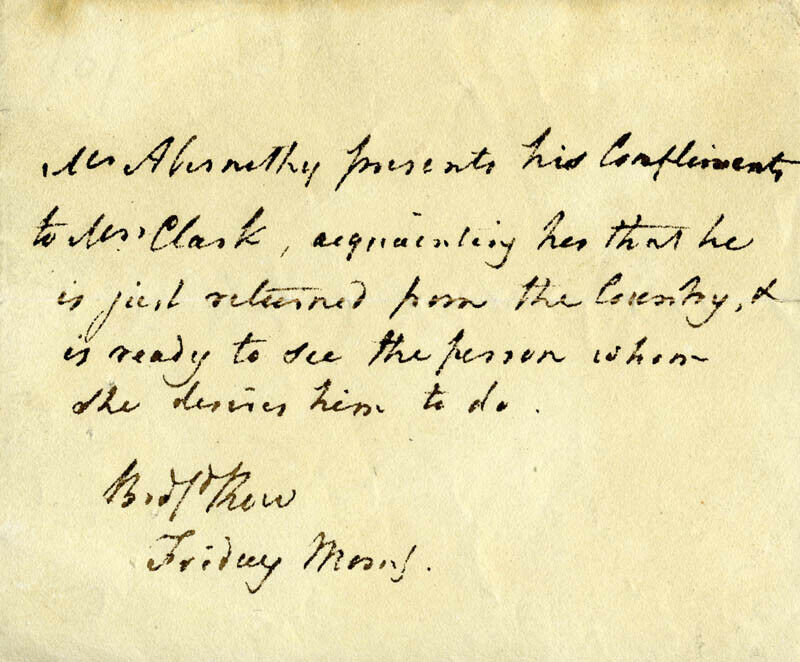 Mr Abernethy presents his Compliments
to Mrs Clark, acquainting her that he
is just returned from the Country, &
is ready to see the person whom
she desires him to do.
Bedfd Row
Friday Morng.